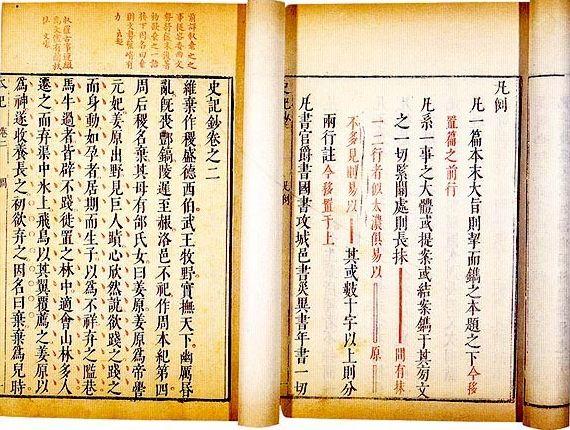 凡例
凡一篇本末大旨則挈而鐫之本題之下今移
置篇之前行
凡系一事之大體或提案或結案鐫于其旁文
之一切緊關處則長抹 間有抹
一二行者似太濃俱易以 原
不多見則易以 其或數十字以上則分
兩行註今移置于上
凡書官爵書國書攻城邑書災異書年書一切
凡例
前詳叙棄之之
事從容委曲文
勢將促末復著
初欲棄之一語
後下因名曰棄
則文勢有
力
叙履古事連綴
處文體有
史記鈔卷之二
維棄作稷盛德西伯武王牧野實撫天下幽厲昏
亂旣喪酆鎬陵遲至赧洛邑不祀作周本紀第四
周后稷名棄其母有邰氏女曰姜原姜原為帝嚳
元妃姜原出野見巨人跡心欣然說欲踐之踐之
而身動如孕者居期而生子以為不祥弃之隘巷
馬牛過者皆辟不踐徙置之林中適會山林多人
遷之而弃渠中冰上飛鳥以其翼覆薦之姜原以
為神遂收養長之初欲弃之因名曰棄棄為兒時
本紀 卷二 周